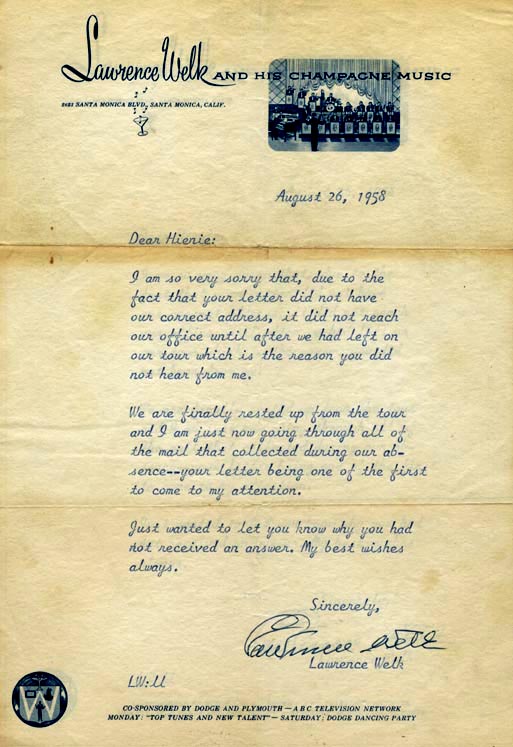 Lawrence Welk AND HIS CHAMPAGNE MUSIC
2623 SANTA MONICA BLVD., SANTA MONICA, CALIF.
August 26, 1958
Dear Hienie:
I am so very sorry that, due to the
fact that your letter did not have
our correct address, it did not reach
our office until after we had left on
our tour which is the reason you did
not hear from me.
We are finally rested up from the tour
and I am just now going through all of
the mail that collected during our ab-
sence--your letter being one of the first
to come to my attention.
Just wanted to let you know why you had
not received an answer. My best wishes
always.
Sincerely,
Lawrence Welk
Lawrence Welk
LW:ll
W
CO-SPONSORED BY DODGE AND PLYMOUTH — ABC TELEVISION NETWORK
MONDAY: "TOP TUNES AND NEW TALENT" — SATURDAY: DODGE DANCING PARTY